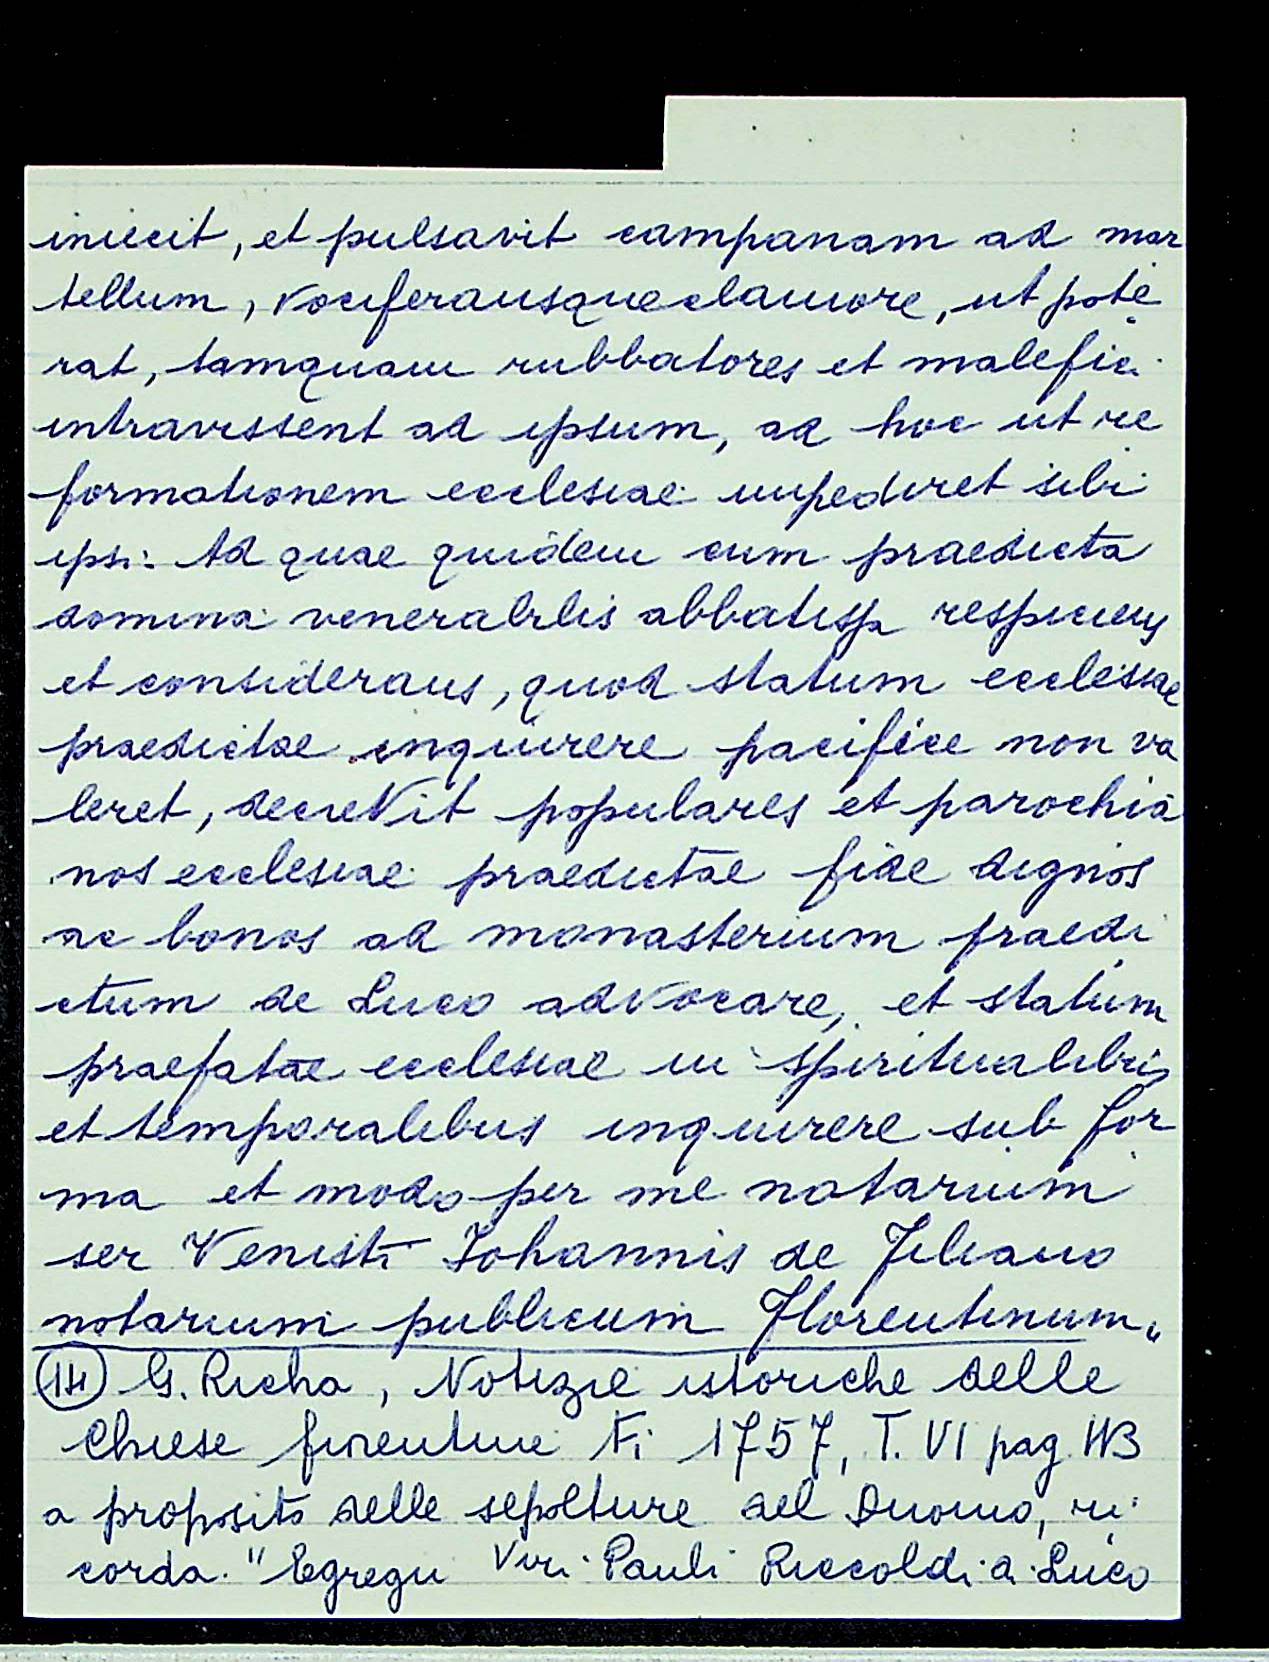 iniecit, et pulsavit campanam ad mar
tellum, vociferansque clamore, ut pote
rat, tamquam rubbatores et malefici
intravissent ad ipsum, ad hoc ut re
formationem ecclesiae impediret sibi
ipsi: Ad quae quidem cum praedicta
domina venerabilis abbatissa respiciens
et considerans, quod statum ecclesiae
praedictae inquirere pacifice non va
leret, decrevit populares et parochia
nos ecclesiae praedictae fide dignos
ac bonos ad monasterium praedi
ctum de Luco advocare, et statum
praefatae ecclesiae in spiritualibus
et temporalibus inquirere sub for
ma et modo per me notarium
ser Veristi Iohannis de Filicaio
notarium publicum Florentinum"
(14) G. Richa, Notizie istoriche delle
Chiese fiorentine Fi 1757, T. VI pag 113
a proposito delle sepolture del Duomo, ri
corda. "Egregii Viri Pauli Riccoldi a Luco